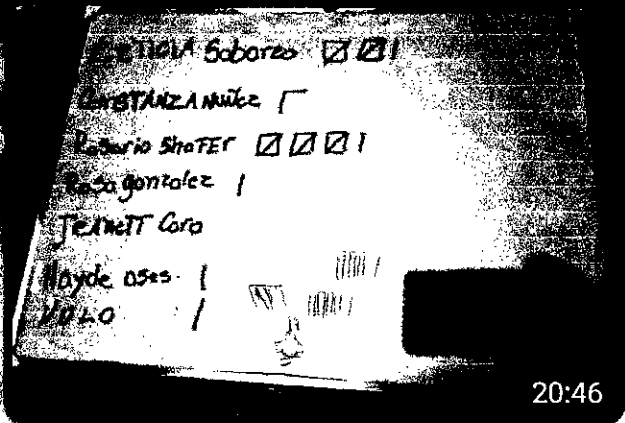 LETICIA Saborzo
CONSTANZA NUÑEZ
Rosario ShaFER
Rosa gonzalez
JEANETT Coro
Hayde OSES
NULO
20:46